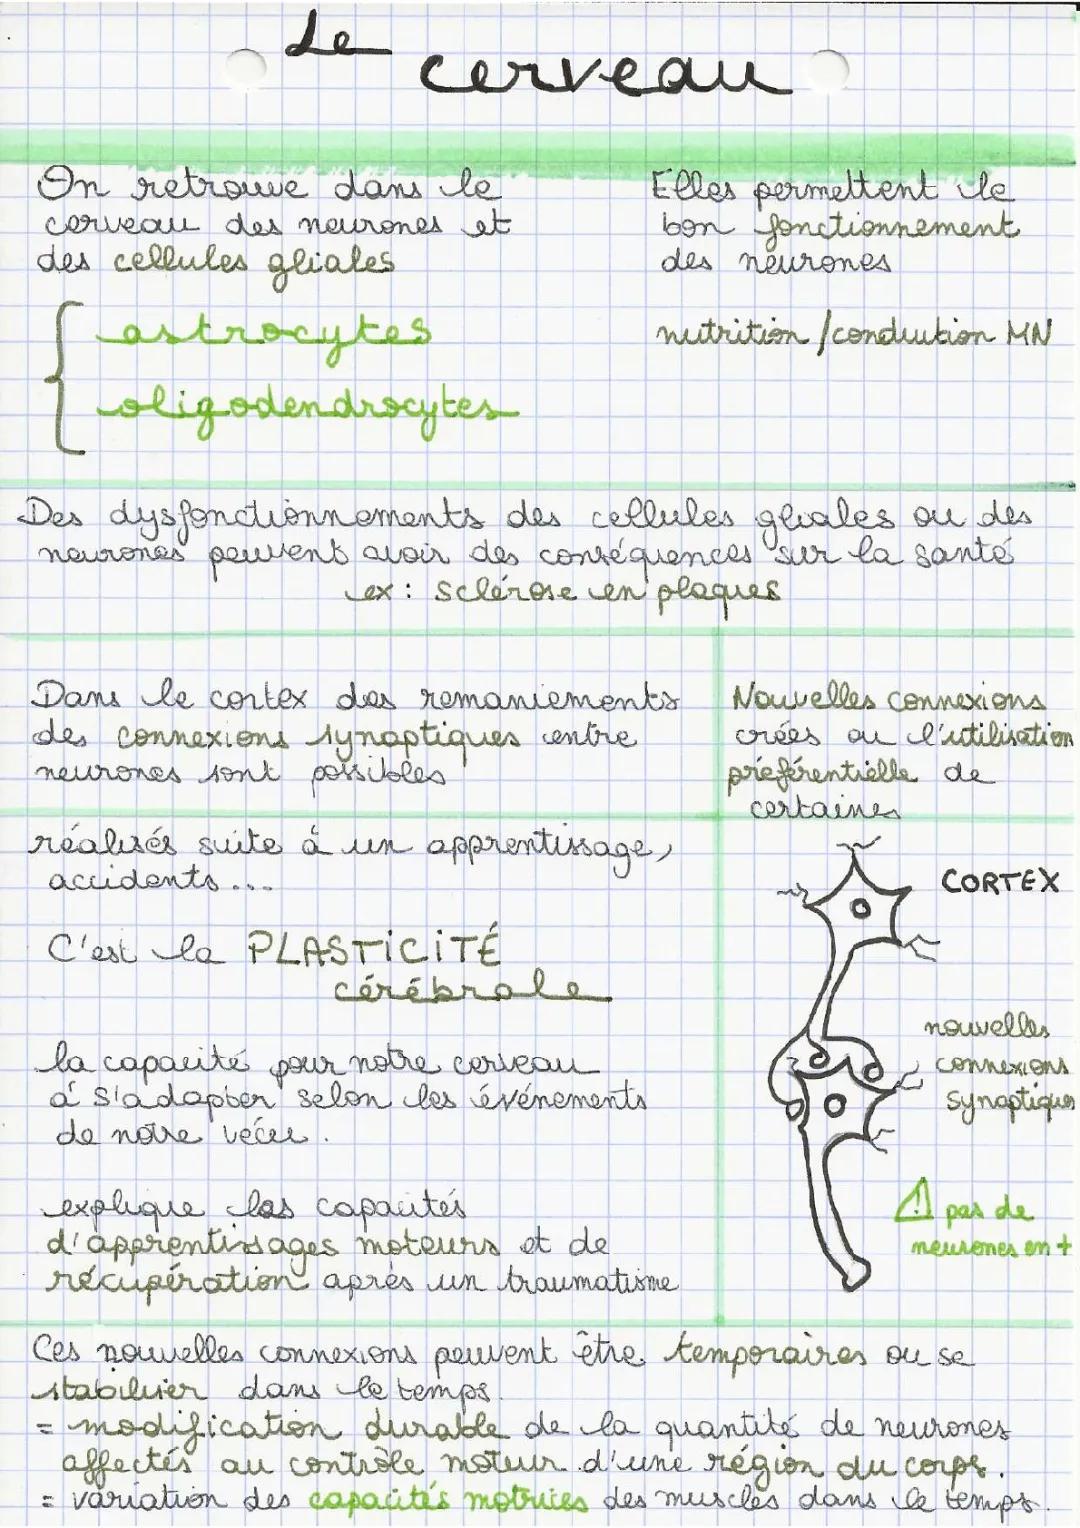 Le cerveau
On retrouve dans le
cerveau des neurones et
des cellules gliales
astrocytes
oligodendrocytes
Elles permettent le
bon fonctionnement
des neurones
nutrition / conduction MN
Des dysfonctionnements des cellules gliales ou des
neurones peuvent avoir des conséquences sur la santé
ex : sclérose en plaques
Dans le cortex des remaniements
des connexions synaptiques entre
neurones sont possibles
Nouvelles connexions
crées ou l'utilisation
préférentielle de
certaines
réalisés suite à un apprentissage,
accidents...
C'est la PLASTiCiTÉ
cérébrale
la capacité pour notre cerveau
à s'adapter selon les événements
de notre vécu.
explique les capacités
d'apprentissages moteurs et de
récupération après un traumatisme
CORTEX
nouvelles
connexions
synaptiques
! pas de
neurones en +
Ces nouvelles connexions peuvent être temporaires ou se
stabiliser dans le temps.
= modification durable de la quantité de neurones
affectés au contrôle moteur d'une région du corps.
= variation des capacités motrices des muscles dans le temps.